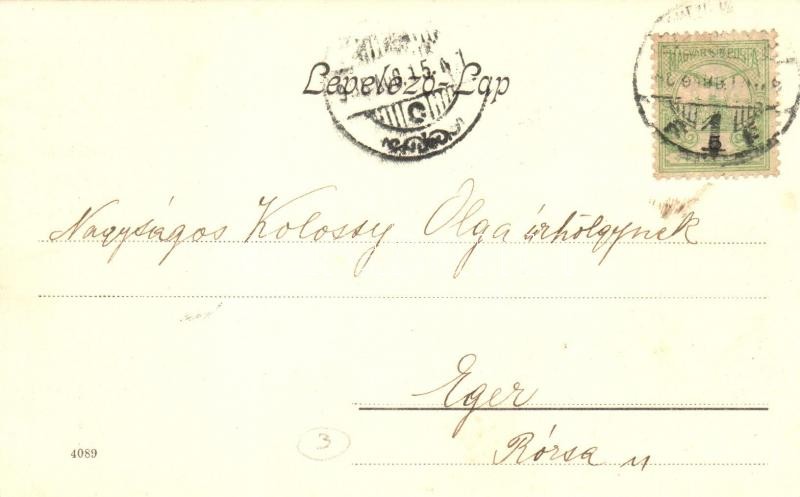 Levelező-Lap
MAGYAR KIR. POSTA
1
Nagyságos Kolossy Olga úrhölgynek
Eger
Rózsa u
3
4089